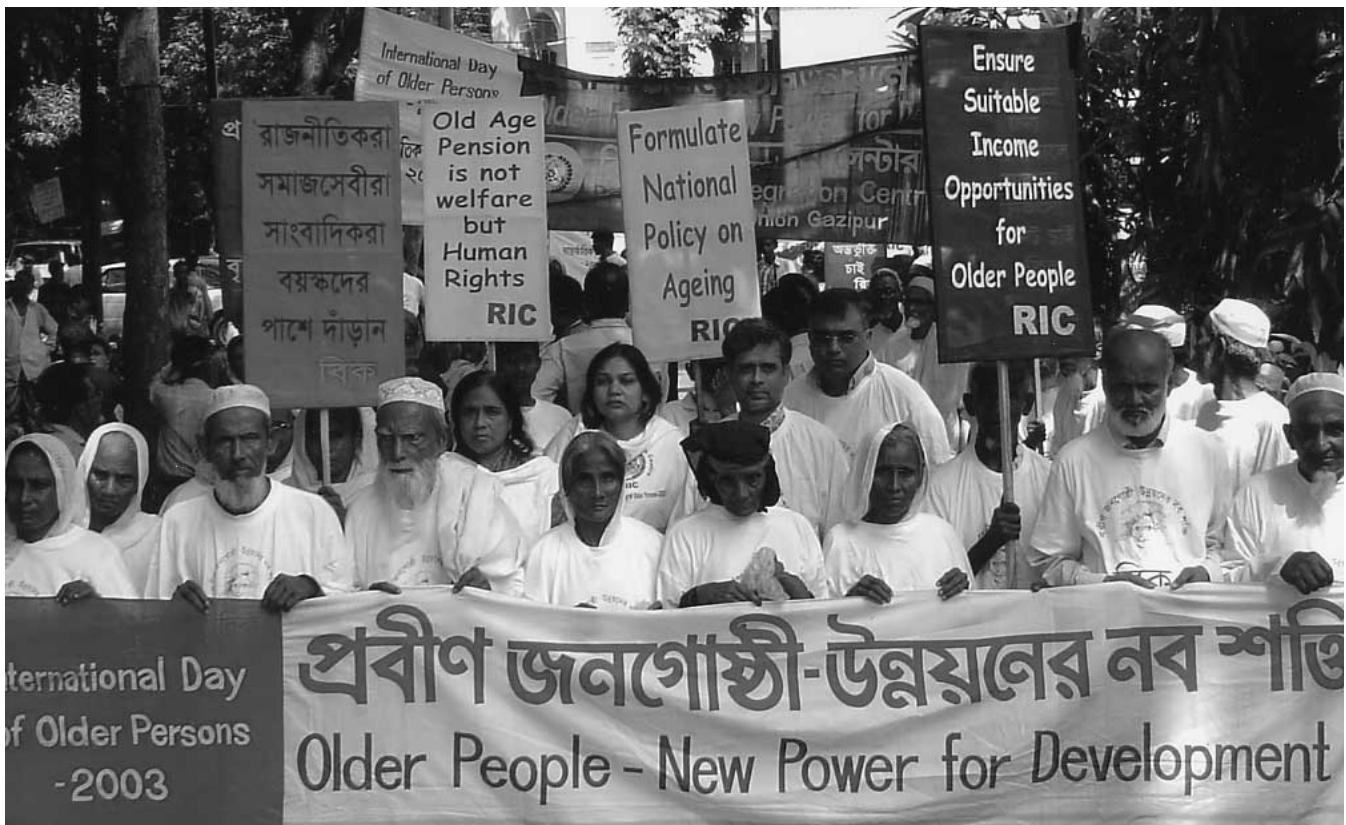 International Day
of Older Persons
রাজনীতিকরা
সমাজসেবীরা
সাংবাদিকরা
বয়স্কদের
পাশে দাঁড়ান
রিক
Old Age
Pension
is not
welfare
but
Human
Rights
RIC
Formulate
National
Policy on
Ageing
RIC
Older
Power for
সেন্টার
Centr
Union Gazipur
Ensure
Suitable
Income
Opportunities
for
Older People
RIC
অন্তর্ভুক্তি
চাই
RIC
ternational Day
of Older Persons
-2003
প্রবীণ জনগোষ্ঠী-উন্নয়নের নব শক্তি
Older People - New Power for Development